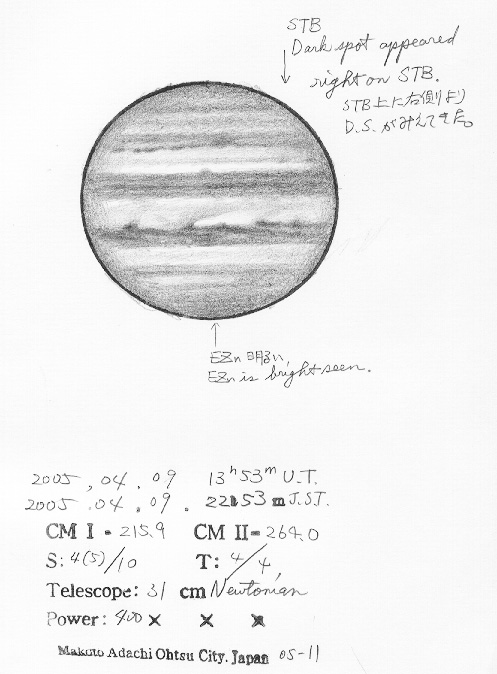 STB
Dark spot appeared
right on STB.
STB上に右側より
D.S.がみえてきた。
EZn 明るい,
EZn is bright seen.
2005, 04, 09 13h53m U.T.
2005.04.09. 22h53m J.S.T.
CM I = 215.9 CM II = 264.0
S: 4(5)/10 T: 4/4,
Telescope: 31 cm Newtonian
Power: 400 × × ×
Makoto Adachi Ohtsu City. Japan 05-11